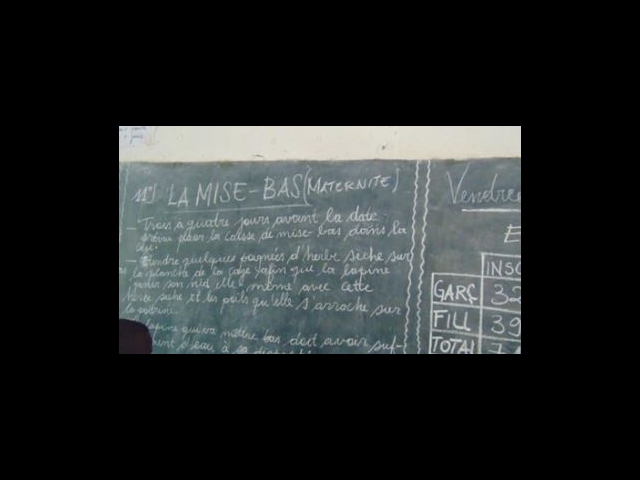 11°) LA MISE-BAS (MATERNITE)
- Trois à quatre jours avant la date
prévu placer la caisse de mise-bas dans la
cage.
- Etendre quelques poignées d'herbe sèche sur
la planche de la cage afin que la lapine
son nid elle même avec cette
herbe sèche et les poils qu'elle s'arrache sur
la poitrine.
lapine qui va mettre bas doit avoir suf-
d'eau à sa
Vendre
E
INSC
GARÇ 32
FILL 39
TOTAL 7